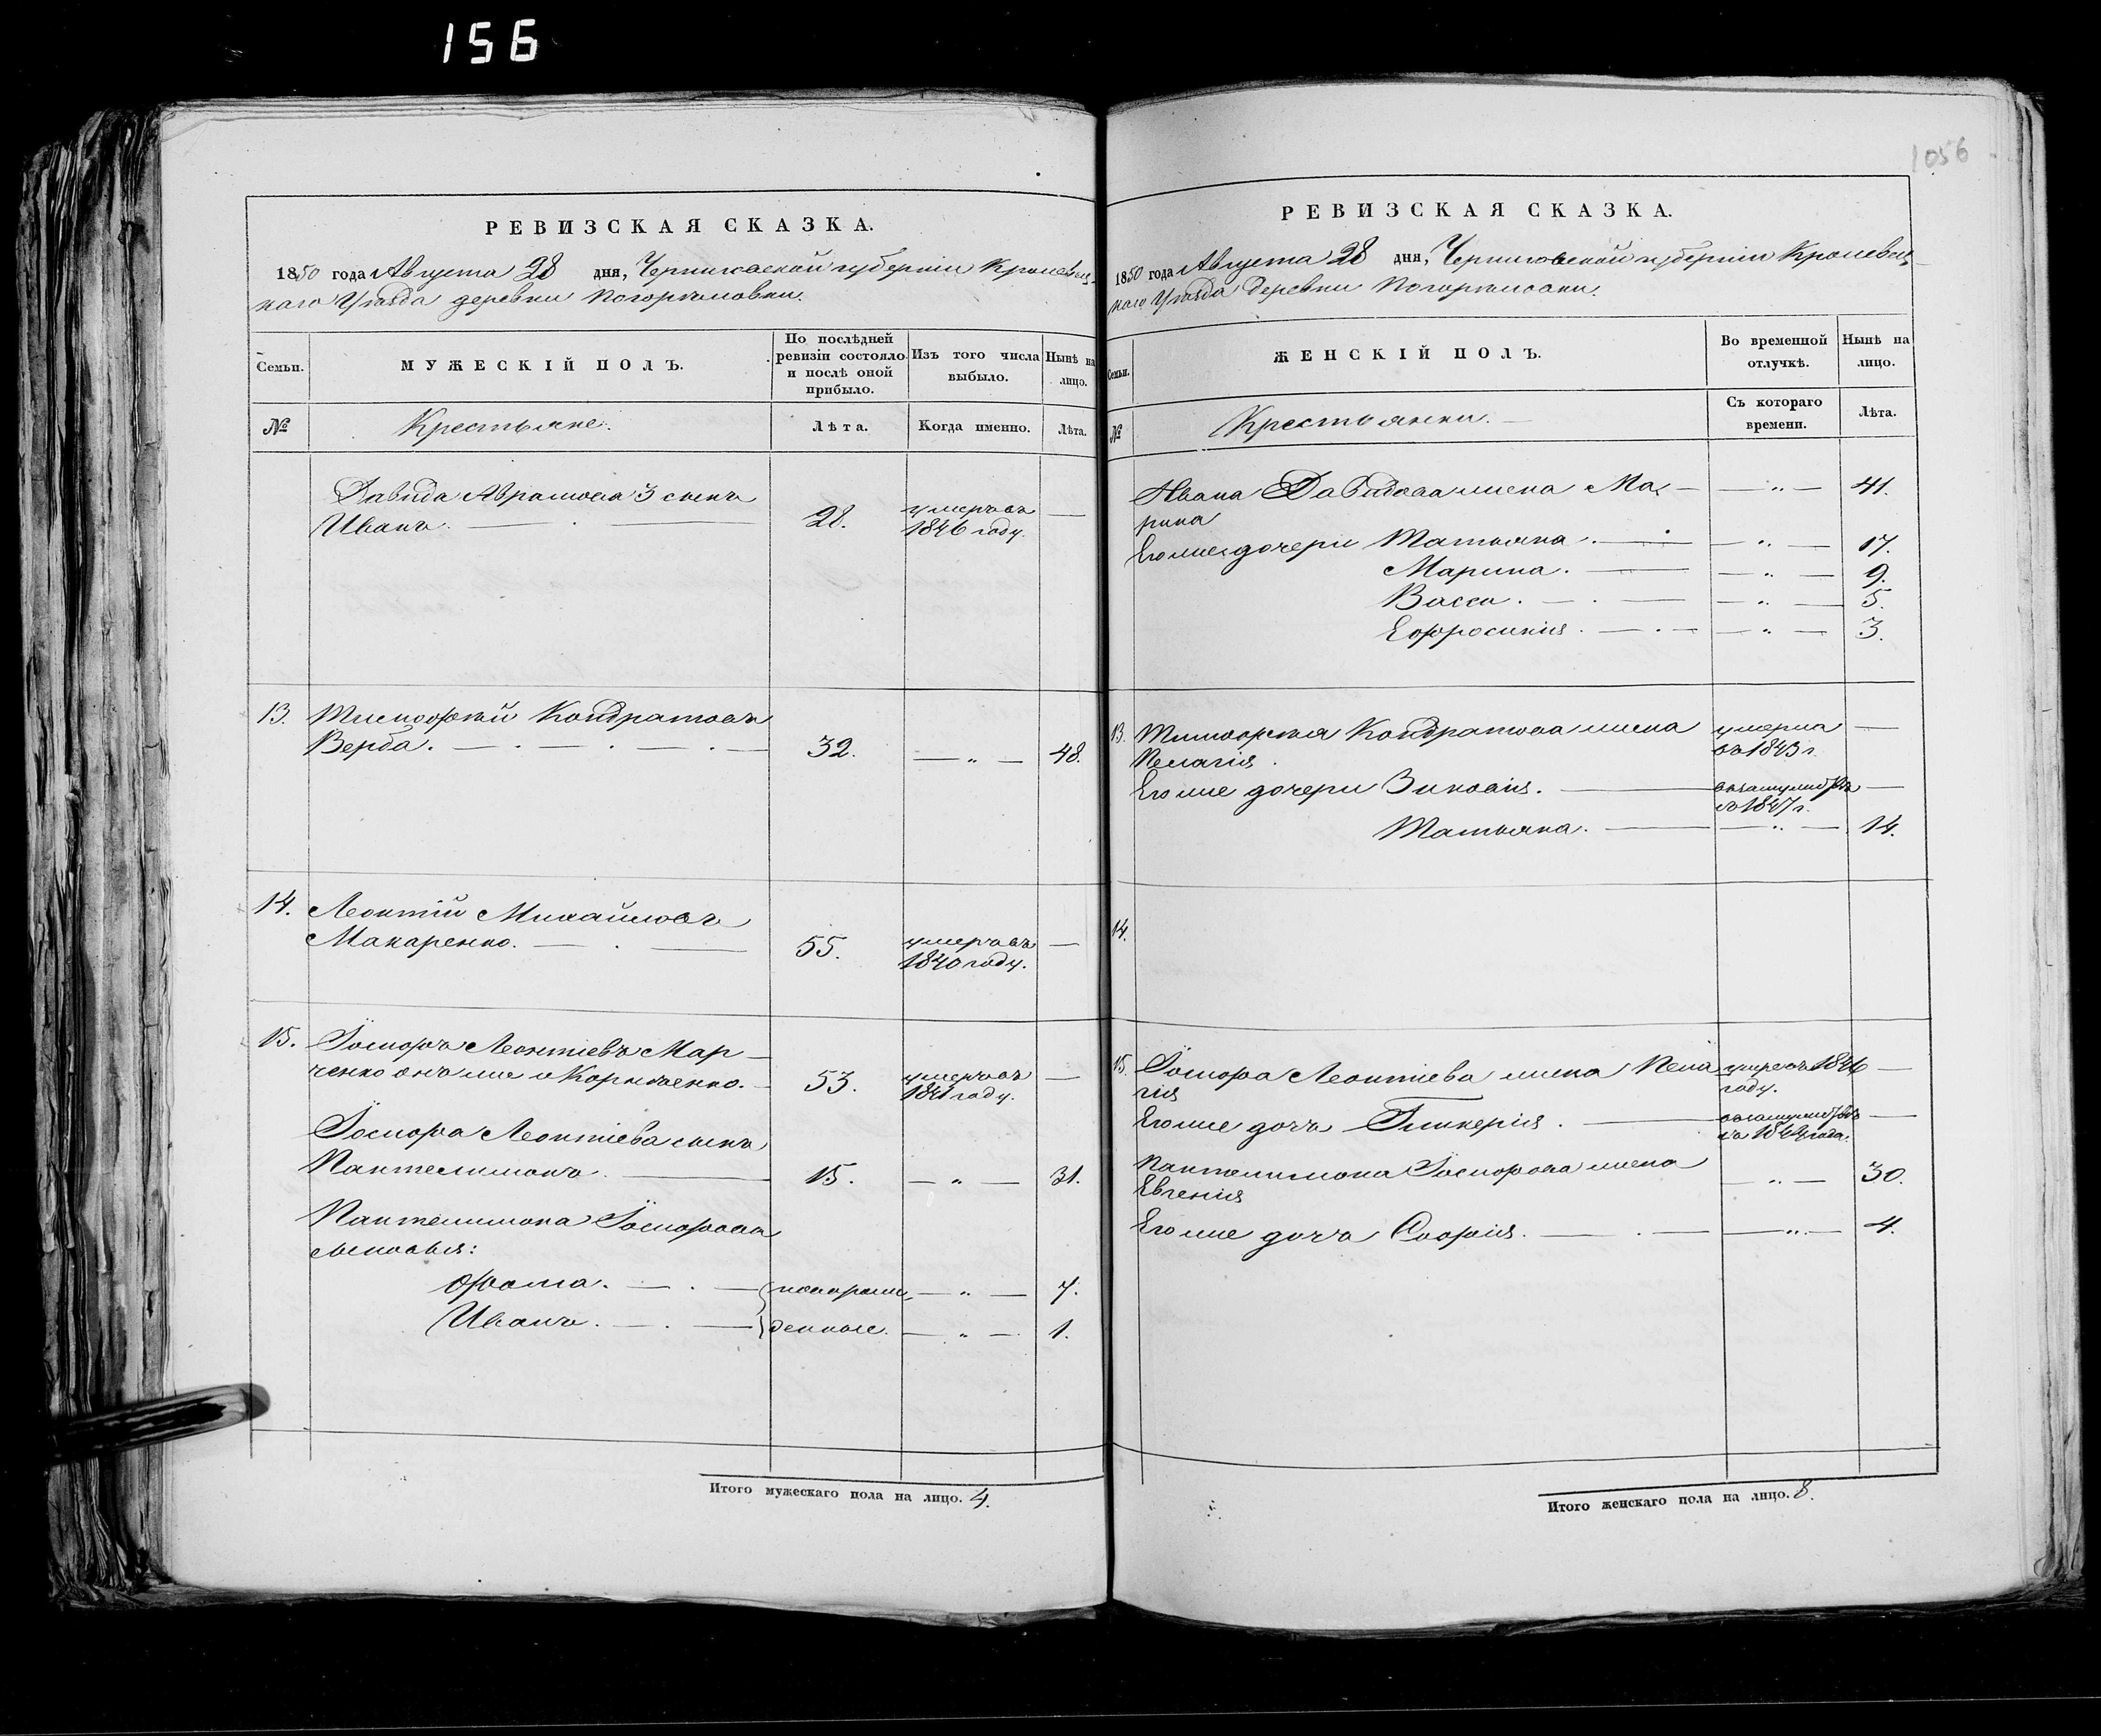 156
1056
РЕВИЗСКАЯ СКАЗКА.
1850 года Августа 28 дня, Черниговской губерніи Кролевец-
каго Уѣзда деревни Погорѣловки.
Семьи.
МУЖЕСКІЙ ПОЛЪ.
По послѣдней
ревизіи состояло
и послѣ оной
прибыло.
Изъ того числа
выбыло.
Нынѣ на
лицо.
№
Крестьяне.
Лѣта.
Когда именно.
Лѣта.
Давида Аврамова 3 сынъ
Иванъ. 28. умеръ въ —
1846 году.
13. Тимофѣй Кондратовъ
Верба. 32. — „ — 48.
14. Леонтій Михайловъ
Макаренко. 55. умеръ въ —
1840 году.
15. Іосифъ Леонтіевъ Мар-
ченко онъ же и 53. умеръ въ —
1841 году.
Іосифа Леонтіева сынъ
Пантелимонъ. 15. — „ — 31.
Пантелимона Іосифова
сыновья:
Фома. новорож- — „ — 7.
Иванъ. денные. — „ — 1.
Итого мужескаго пола на лицо. 4.
РЕВИЗСКАЯ СКАЗКА.
1850 года Августа 28 дня, Черниговской губерніи Кролевец-
каго Уѣзда деревни Погорѣловки.
Семьи.
ЖЕНСКІЙ ПОЛЪ.
Во временной
отлучкѣ.
Нынѣ на
лицо.
№
Крестьянки.
Съ котораго
времени.
Лѣта.
Ивана Давидова жена Ма- — „ — 41.
рина
Его же дочери Татьяна. — „ — 17.
Марина. — „ — 9.
Васса. — „ — 5.
Ефросинія. — „ — 3.
13. Тимофѣя Кондратова жена умерла —
Пелагія. въ 1843 г.
Его же дочери Зиновія. въ замужствѣ —
съ 1847 г.
Татьяна. — „ — 14.
14.
15. Іосифа Леонтіева жена Пела- 1846 —
гія году.
Его же дочь Гликерія. въ замужствѣ —
съ 1844 года.
Пантелимона Іосифова жена
Евгенія — „ — 30.
Его же дочь Софія. — „ — 4.
Итого женскаго пола на лицо. 8.